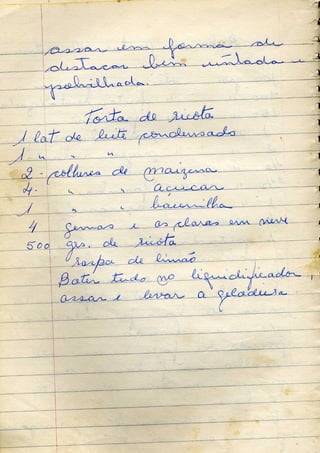 assar em forma de
destacar bem untada e
polvilhada.
Torta de ricota
1 lat de leite condensado
1 " " "
2 - colheres de maizena
4 - " " açucar
1 " " baunilha
4 gemas e as claras em neve
500 grs. de ricota
raspa de limão
Bater tudo no liquidificador,
assar e levar a geladeira